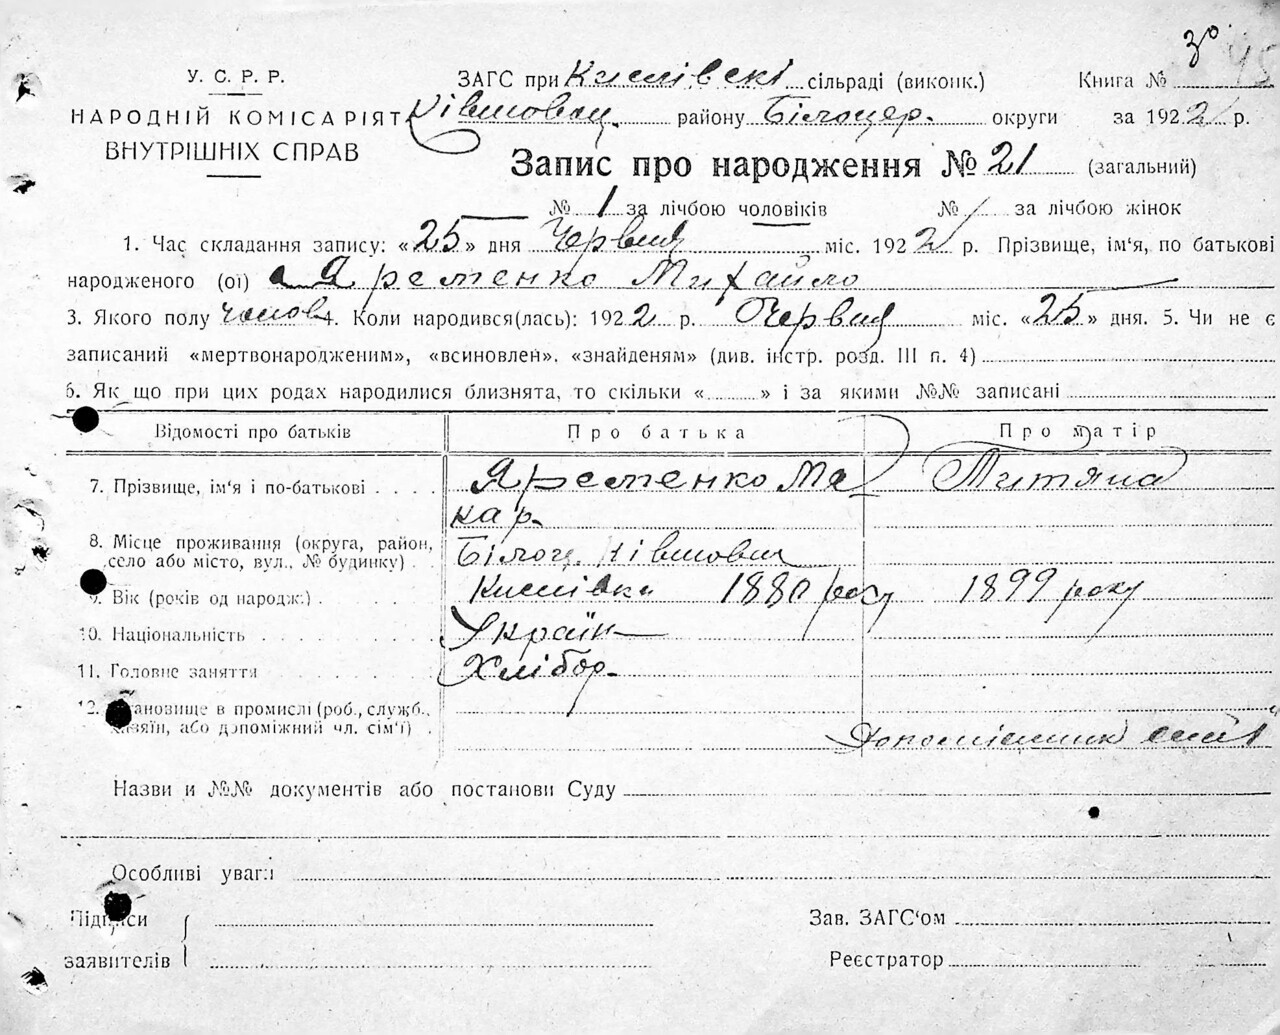 30 48
У. С. Р. Р.
НАРОДНІЙ КОМІСАРІЯТ
ВНУТРІШНІХ СПРАВ
ЗАГС при Кислівскі сільраді (виконк.) Книга №
Ківшовац. району Білоцер. округи за 1922 р.
Запис про народження № 21 (загальний)
№ 1 за лічбою чоловіків № / за лічбою жінок
1. Час складання запису: «25» дня Червця міс. 1922 р. Прізвище, ім‘я, по батькові
народженого (ої) Яременко Михайло
3. Якого полу чолов 4. Коли народився(лась): 1922 р. Червця міс. «25» дня. 5. Чи не є
записаний «мертвонародженим», «всиновлен», «знайденям» (див. інстр. розд. III п. 4)
6. Як що при цих родах народилися близнята, то скільки « » і за якими №№ записані
Відомості про батьків Про батька Про матір
7. Прізвище, ім‘я і по-батькові Яременко Ма Титяна
кар.
8. Місце проживання (округа, район, село або місто, вул., № будинку) Білоц. Ківшовац
9. Вік (років од народж.) Кислівка 1880 року 1899 року
10. Національність Україн
11. Головне заняття Хлібор.
12. Становище в промислі (роб., служб.,
хазяїн, або допоміжний чл. сім‘ї) Допоміжник сімї
Назви и №№ документів або постанови Суду
Особливі уваги
Підписи Зав. ЗАГС‘ом
заявителів Реєстратор